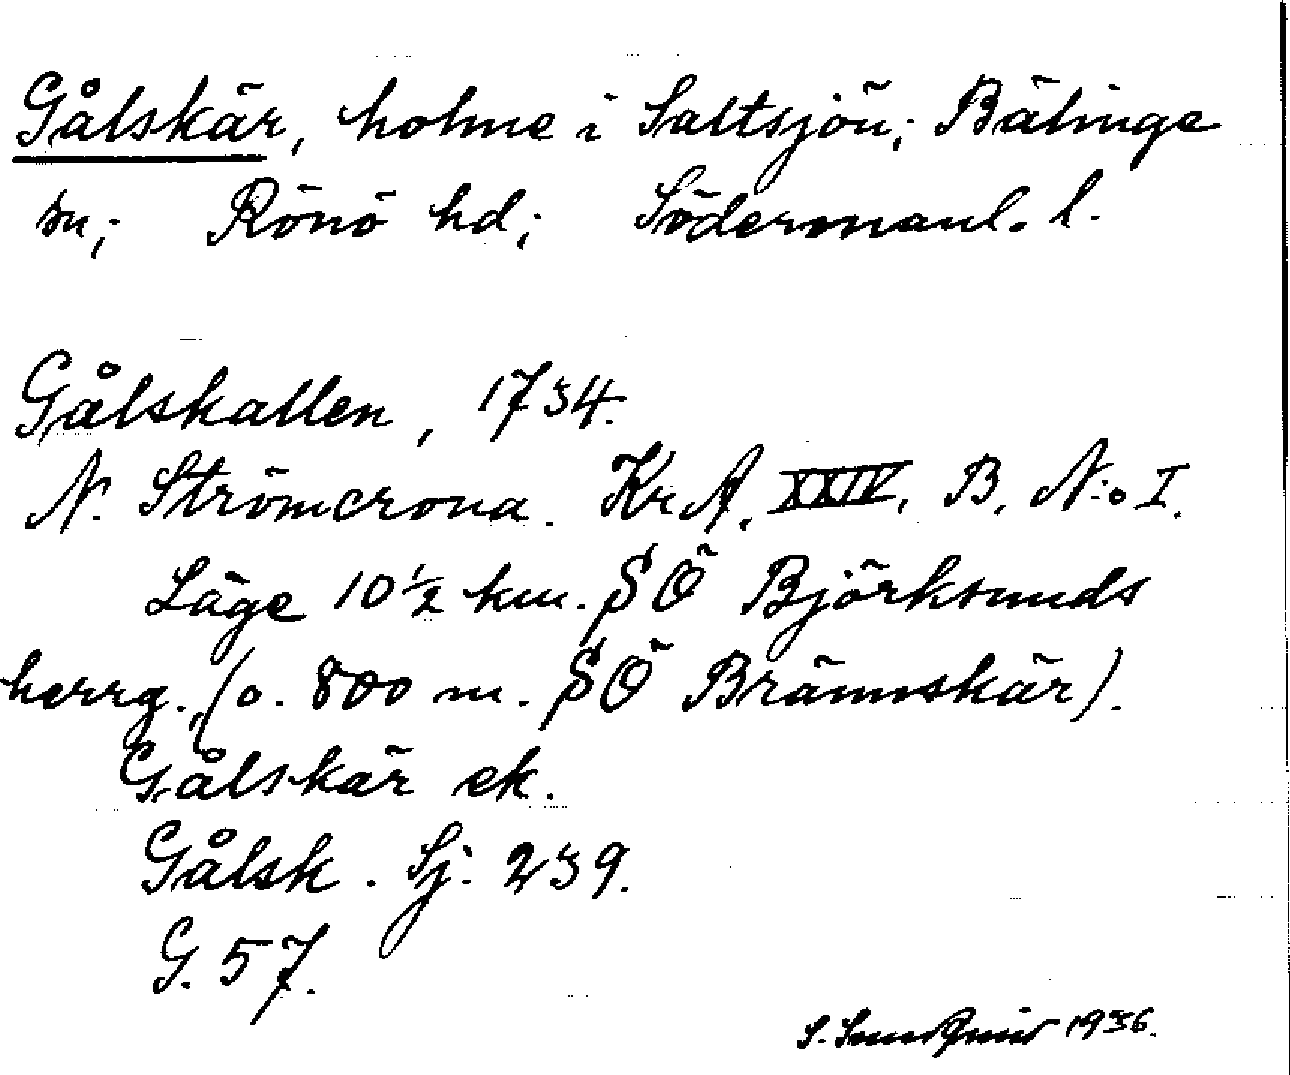 Gålskär, holme i Saltsjön; Bälinge
sn; Rönö hd; Södermanl. l.
Gålskallen, 1734.
N. Strömcrona. Kr A. XXIV. B. N:o I.
Läge 10 ½ km. SÖ Björksunds
herrg., (o. 800 m. SÖ Brännskär).
Gålskär ek.
Gålsk. Sj. 239.
G. 57.
S. Sundquist 1936.